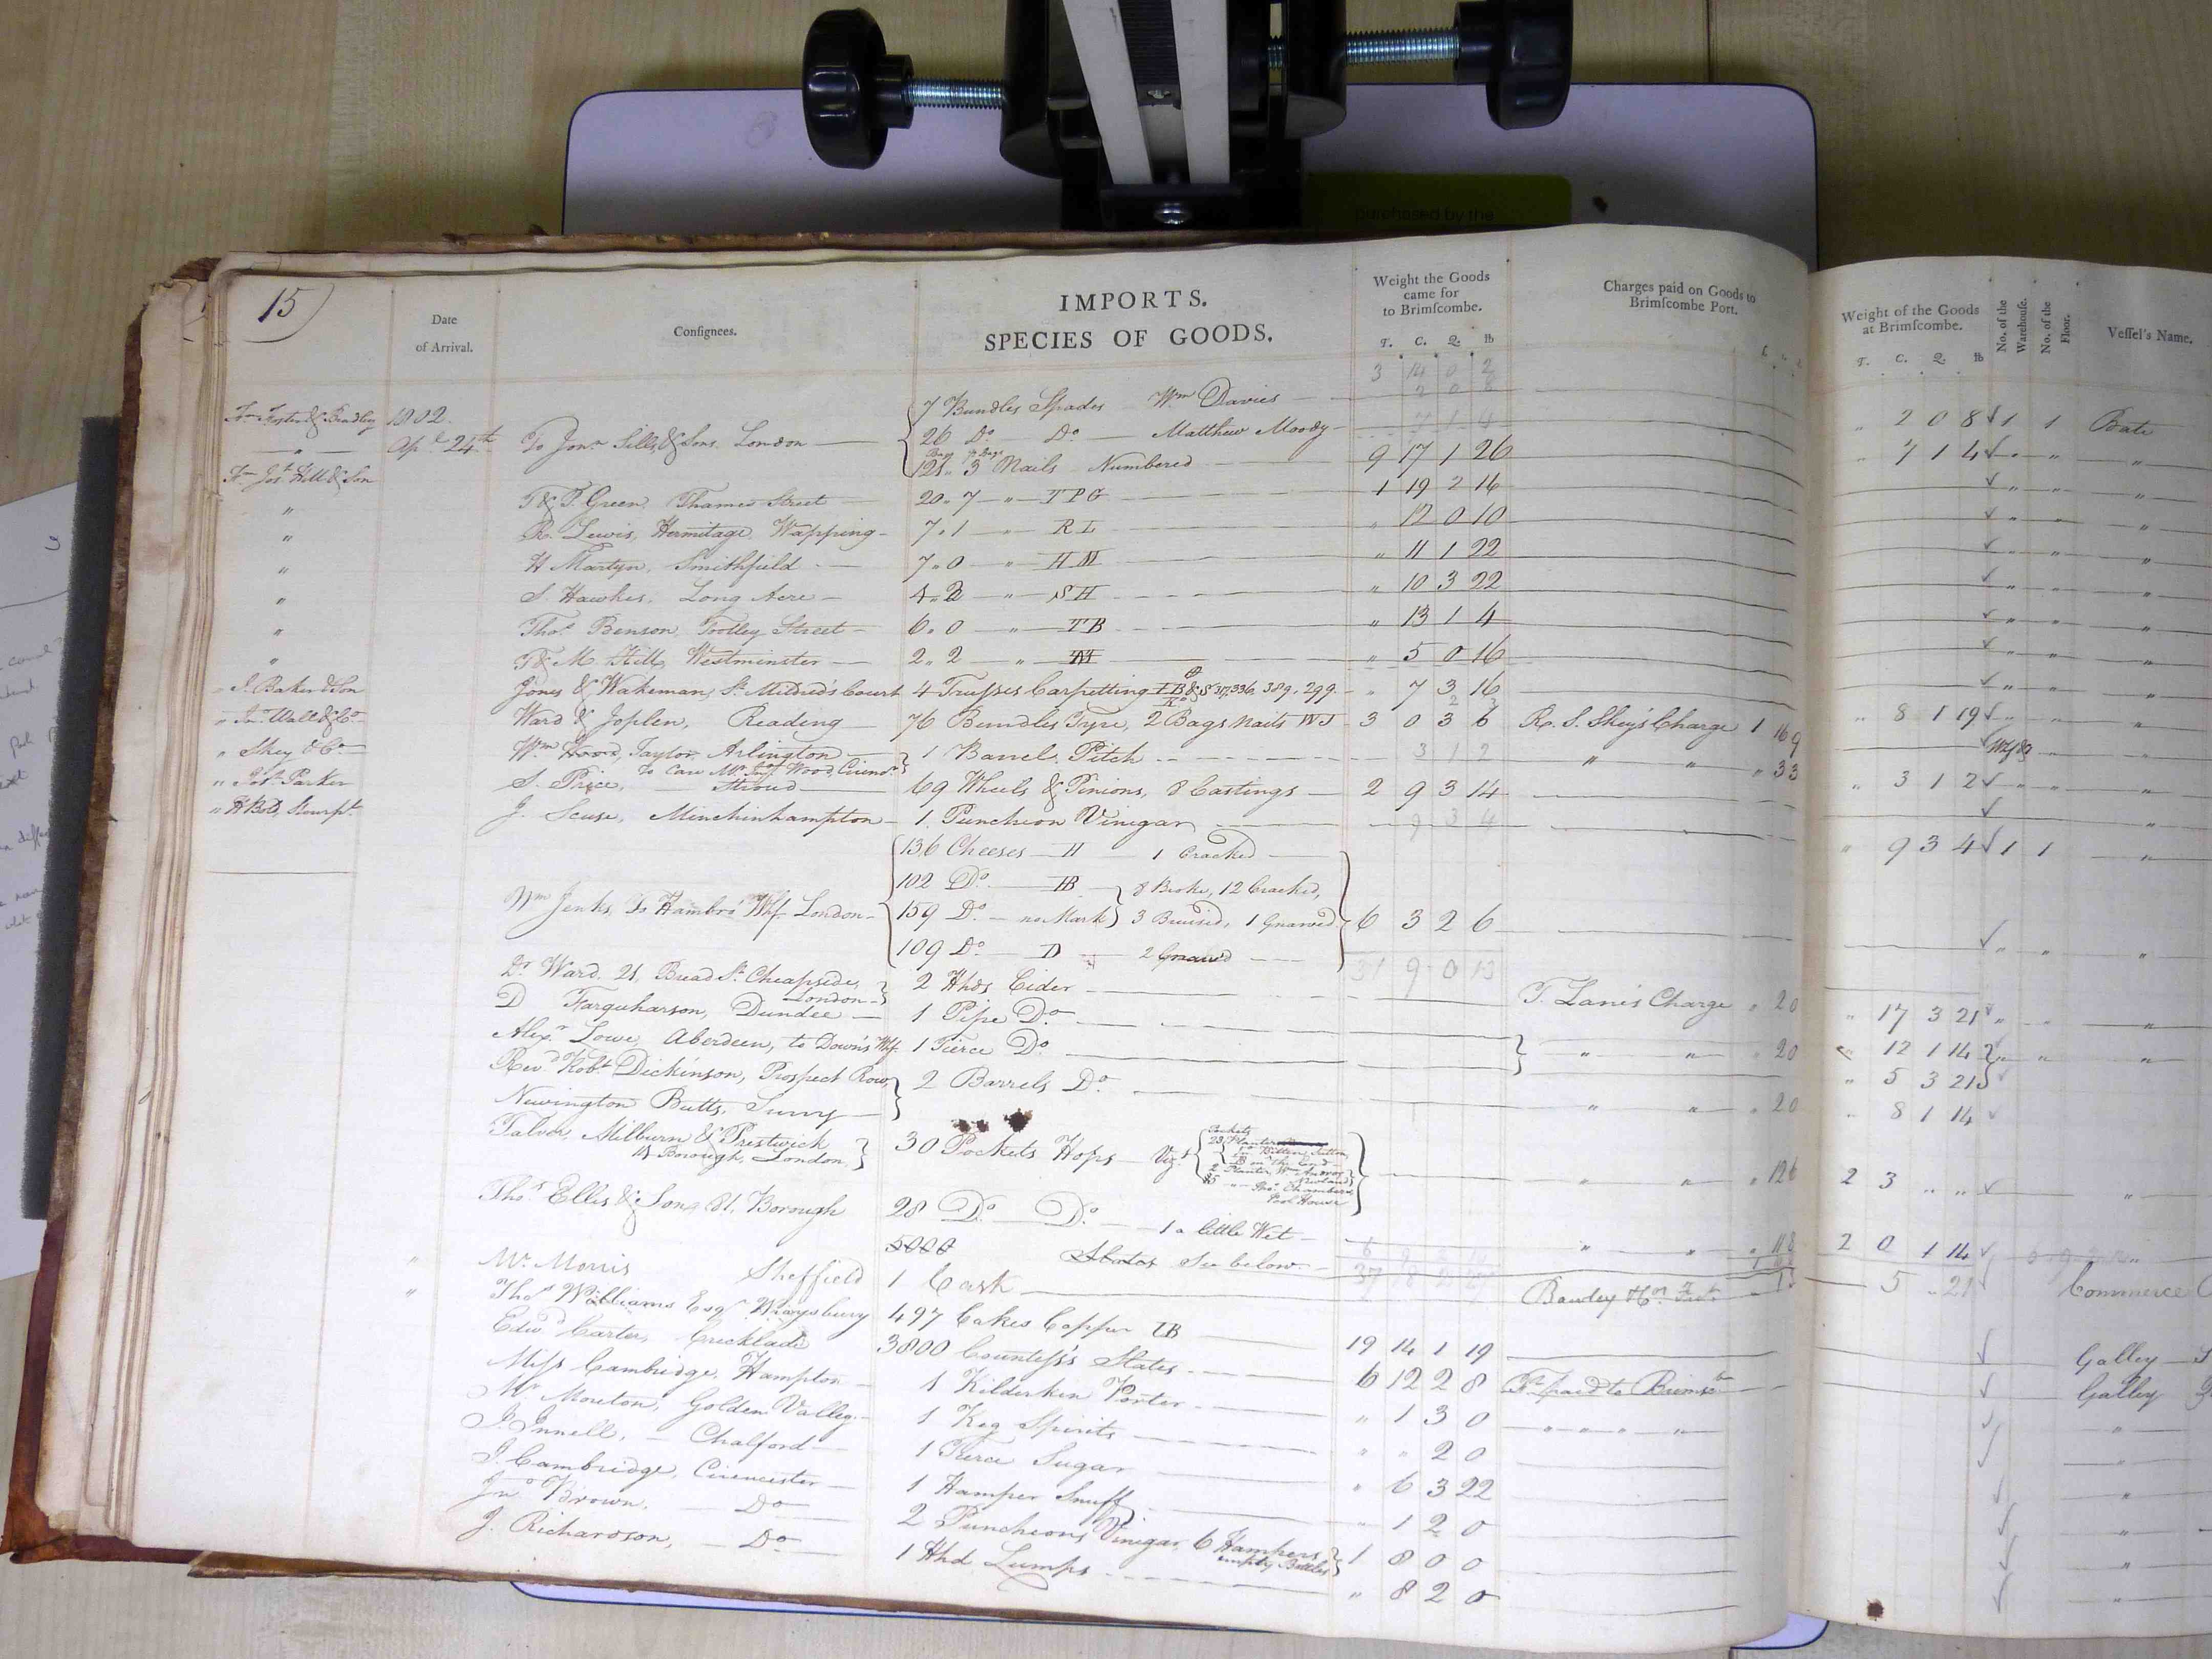 purchased by the
15
Date
of Arrival.
Consignees.
IMPORTS.
SPECIES OF GOODS.
Weight the Goods
came for
to Brimſcombe.
T. C. Q. lb
Charges paid on Goods to
Brimſcombe Port.
Weight of the Goods
at Brimſcombe.
T. C. Q. lb
No. of the
Warehouſe.
No. of the
Floor.
Veſſel's Name.
3 14 0 2
2 0 8
Fm Foster & Bradley 1802. 7 Bundles Spades Wm Davies 2 0 8 ✓ 1 1 Bate
" Apl 24th To Jonn Sills & Sons, London 26 Do Do Matthew Moody 7 1 4 " 7 1 4 ✓ " " "
Fm Jos Hill & Son 121 " 3 Nails Numbered 9 17 1 26 ✓ " " "
" T & P. Green, Thames Street 20 " 7 " TPG 1 19 2 16 ✓ " " "
" R. Lewis, Hermitage, Wapping 7 " 1 " RL " 12 0 10 ✓ " " "
" H Martyn, Smithfield 7 " 0 " HM " 11 1 22 ✓ " " "
" S. Hawkes, Long Acre 4 " 2 " SH " 10 3 22 ✓ " " "
" Thos Benson, Tooley Street 6 " 0 " TB " 13 1 4 ✓ " " "
" T & M Hill, Westminster 2 " 2 " " 5 0 16 ✓ " " "
" S. Baker & Son Jones & Wakeman, St Mildred's Court 4 Trusses Carpetting 336. 389. 299. " 7 3 16 " 8 1 19 ✓ " " "
" Jno Wall & Co Ward & Joplen, Reading 76 Bundles Tyre, 2 Bags Nails WJ 3 0 3 6 Ro. S. Skey's Charge 1 16 9
" Skey & Co Wm Wood, Taylor, Arlington 1 Barrel Pitch 3 1 2 " " " 3 3 " 3 1 2 ✓ " " "
to care Mr Wood, Cirenr
" Josh Parker S. Price, Stroud 69 Wheels & Pinions, 8 Castings 2 9 3 14 ✓ "
" H Bird, Stourpt J. Scuse, Minchinhampton 1 Puncheon Vinegar 9 3 4 " 9 3 4 ✓ 1 1 "
136 Cheeses H 1 Cracked
102 Do IB 8 Broke, 12 Cracked,
Wm Jenks, To Hambro' Whf London 159 Do no Mark 3 Bruised, 1 Gnawed 6 3 2 6 ✓ " " "
109 Do D 2 Gnawed
31 9 0 13
Dr Ward, 21, Bread St Cheapside, London 2 Hhds Cider T. Lane's Charge " 2 0 " 17 3 21 ✓ " " "
D Farquharson, Dundee 1 Pipe Do " " " 2 0 " 12 1 14 " " "
Alexr Lowe, Aberdeen, to Down's Whf 1 Tierce Do " 5 3 21
Revd Robt Dickinson, Prospect Row, 2 Barrels Do " " " 2 0 " 8 1 14 ✓
Newington Butts, Surry
Milburn & Prestwick 30 Pockets Hops Vizt " " " 12 6 2 3 " " ✓ "
Borough, London
Pockets
Thos Ellis & Son, 81, Borough 28 Do Do 1 a little Wet " " " 11 8 2 0 1 14 ✓
5000 Slates See below
" Mr Morris Sheffield 1 Cask Bawley 5 " 21 ✓ Commerce
" Thos Williams Esqr Wraysbury 497 Cakes Copper TB 19 14 1 19 ✓ Galley
Edwd Carter, Cricklade 3800 Countess's Slates 6 12 2 8 paid to Brimsc ✓ Galley
Miss Cambridge, Hampton 1 Kilderkin Porter " 1 3 0 " " " " " ✓ "
Mr Moreton, Golden Valley 1 Keg Spirits " " 2 0 ✓
J. Innell, Chalford 1 Tierce Sugar " 6 3 22 ✓ "
J. Cambridge, Cirencester 1 Hamper Snuff " 1 2 0 ✓ "
Jno Brown, Do 2 Puncheons Vinegar, 6 Hampers empty Bottles 1 8 0 0 ✓ "
J. Richardson, Do 1 Hhd Lumps " 8 2 0 ✓ "